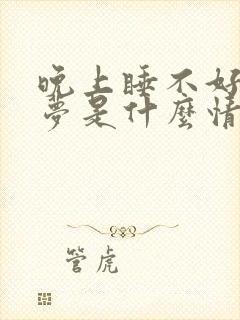 晚上睡不好
夢是什麼情
管虎